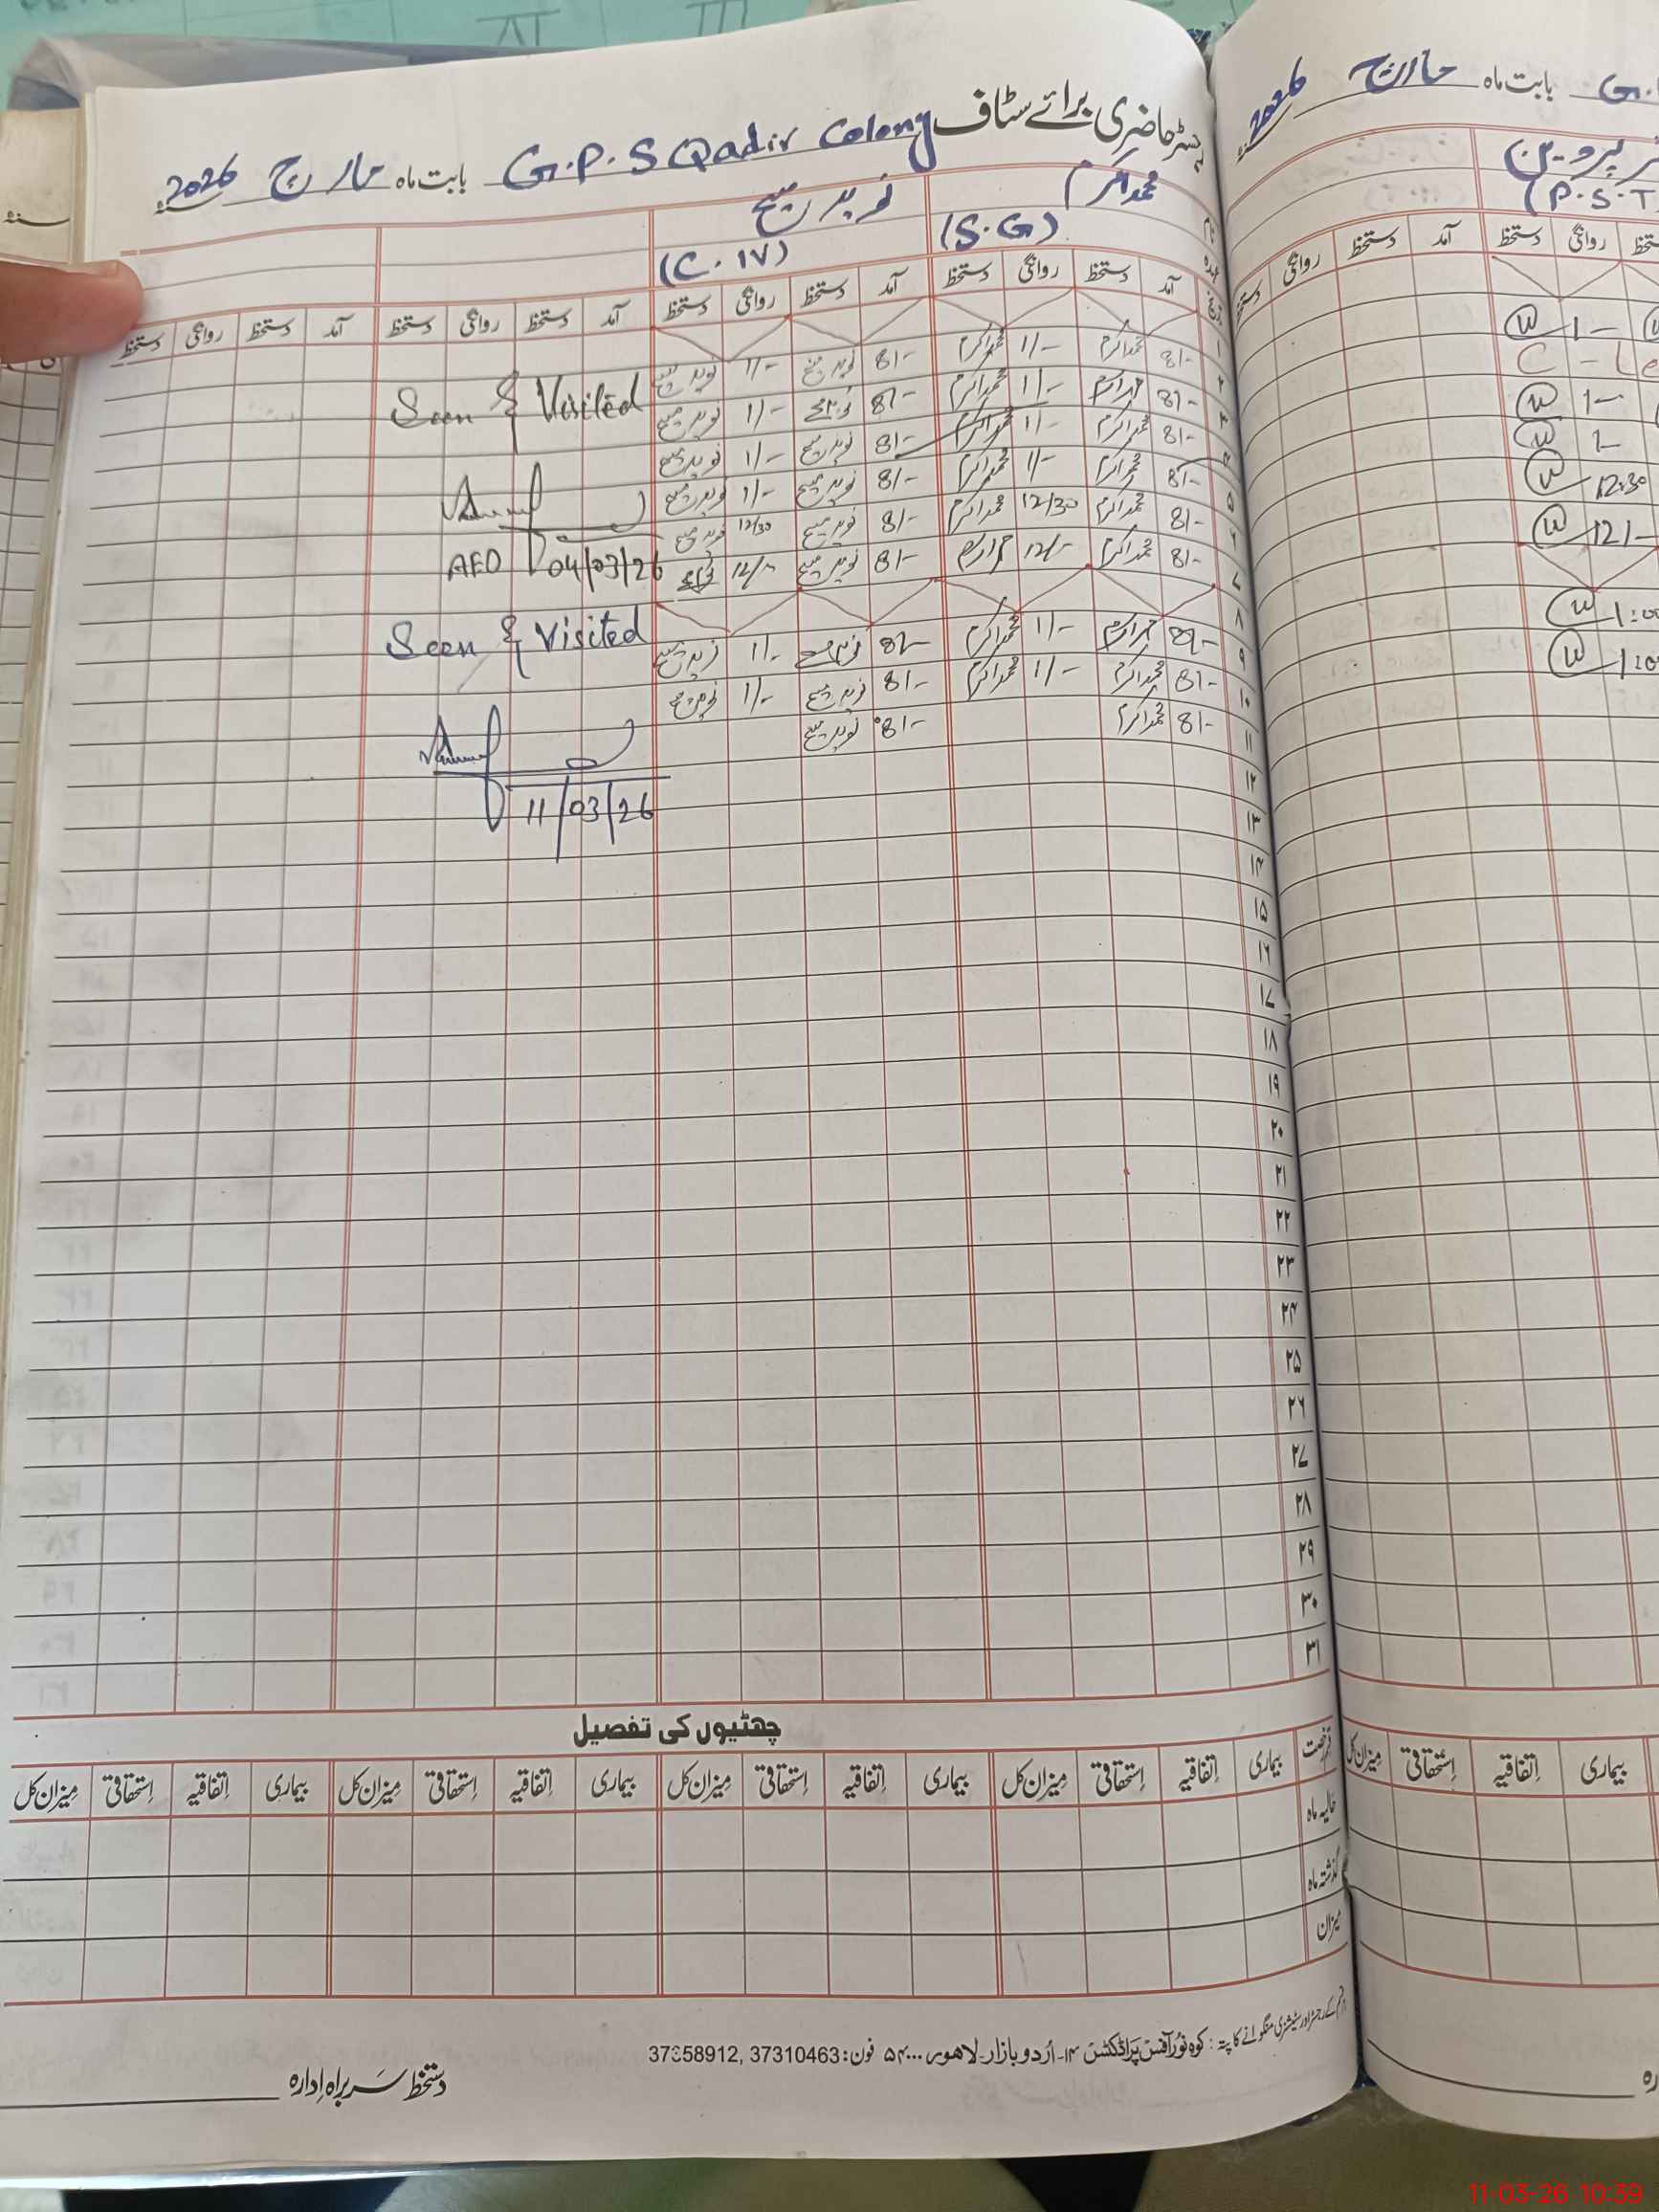 رجسٹر حاضری برائے سٹاف G.P.S Qadir Colony بابت ماہ مارچ 2026
محمد اکرم نوید مسیح
(S.G) (C.IV)
آمد دستخط روانگی دستخط آمد دستخط روانگی دستخط آمد دستخط روانگی دستخط آمد دستخط روانگی دستخط
۱
۲ 8/- محمد اکرم 1/- محمد اکرم 8/- نوید مسیح 1/- نوید مسیح
۳ 8/- محمد اکرم 1/- محمد اکرم 8/- نوید مسیح 1/- نوید مسیح
۴ 8/- محمد اکرم 1/- محمد اکرم 8/- نوید مسیح 1/- نوید مسیح
۵ 8/- محمد اکرم 1/- محمد اکرم 8/- نوید مسیح 1/- نوید مسیح
۶ 8/- محمد اکرم 12/30 محمد اکرم 8/- نوید مسیح 12/30 نوید مسیح
۷ 8/- محمد اکرم 12/- محمد اکرم 8/- نوید مسیح 12/- نوید مسیح
۸
۹ 8/- محمد اکرم 1/- محمد اکرم 8/- نوید مسیح 1/- نوید مسیح
۱۰ 8/- محمد اکرم 1/- محمد اکرم 8/- نوید مسیح 1/- نوید مسیح
۱۱ 8/- محمد اکرم 8/- نوید مسیح
Seen & Visited
AEO 04/03/26
Seen & Visited
11/03/26
۱۲
۱۳
۱۴
۱۵
۱۶
۱۷
۱۸
۱۹
۲۰
۲۱
۲۲
۲۳
۲۴
۲۵
۲۶
۲۷
۲۸
۲۹
۳۰
۳۱
چھٹیوں کی تفصیل
قسم رخصت بیماری اتفاقیہ استحقاقی میزان کل بیماری اتفاقیہ استحقاقی میزان کل بیماری اتفاقیہ استحقاقی میزان کل بیماری اتفاقیہ استحقاقی میزان کل
حالیہ ماہ
گذشتہ ماہ
میزان
ہر قسم کے رجسٹر اور سٹیشنری منگوانے کا پتہ: کوہ نور آفس پراڈکٹس ۱۴-اُردو بازار-لاہور ۵۴۰۰۰ فون: 37310463, 37358912
دستخط سربراہ ادارہ
G. بابت ماہ مارچ 2026
پروین
(P.S.T
دستخط روانگی دستخط آمد دستخط روانگی دستخط
1-
C - Le
1-
1-
12:30
12/-
1:00
1:00
بیماری اتفاقیہ استحقاقی میزان کل
11-03-26 10:39